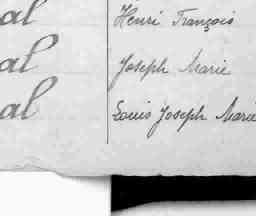 al Henri François
al Joseph Marie
al Louis Joseph Marie